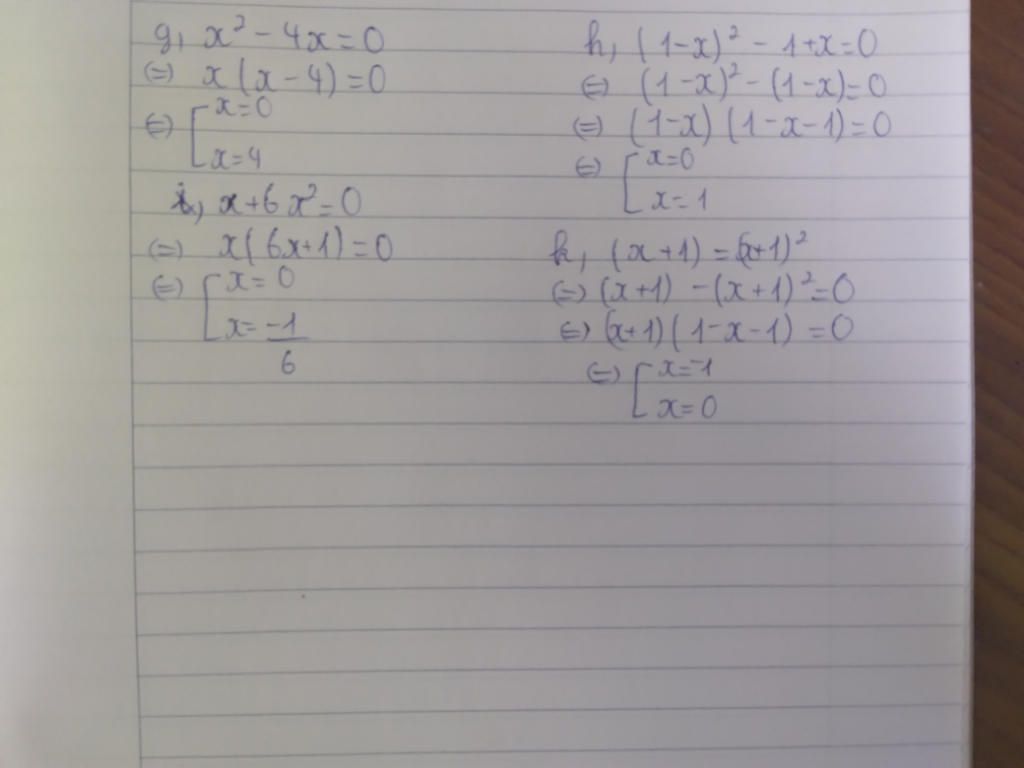 g, x² - 4x = 0
(=) x(x - 4) = 0
(=) [ x = 0
x = 4
i, x + 6x² = 0
(=) x(6x + 1) = 0
(=) [ x = 0
x = -1/6
h, (1 - x)² - 1 + x = 0
(=) (1 - x)² - (1 - x) = 0
(=) (1 - x)(1 - x - 1) = 0
(=) [ x = 0
x = 1
k, (x + 1) = (x + 1)²
(=) (x + 1) - (x + 1)² = 0
(=) (x + 1)(1 - x - 1) = 0
(=) [ x = -1
x = 0